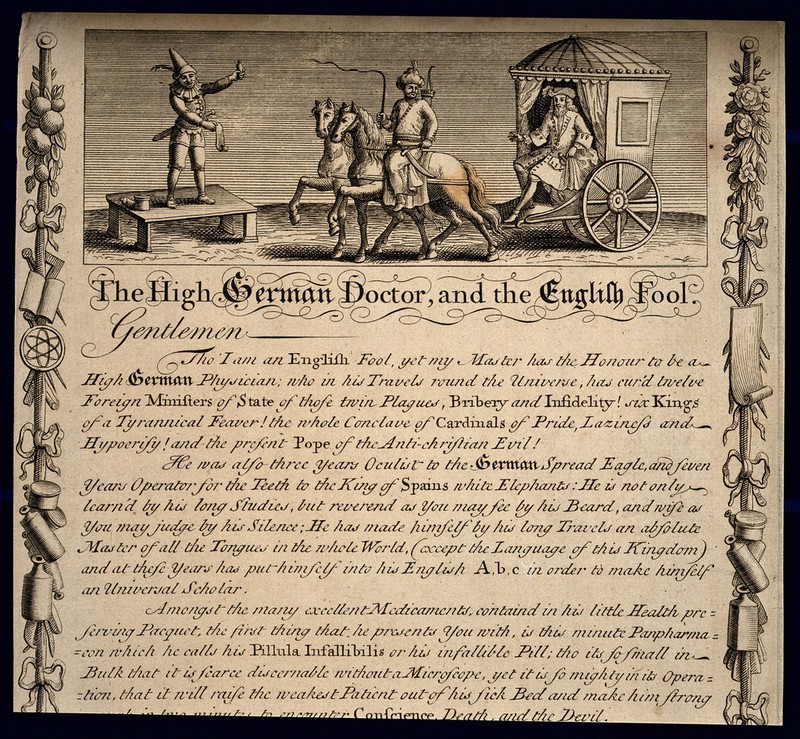 The High German Doctor, and the Engliſh Fool.
Gentlemen
Tho' I am an Engliſh Fool, yet my Master has the Honour to be a
High German Phyſician; who in his Travels round the Universe, has cur'd twelve
Foreign Miniſters of State of thoſe twin Plagues, Bribery and Infidelity! six Kings
of a Tyrannical Feaver! the whole Conclave of Cardinals of Pride, Lazineſs and
Hypocriſy! and the preſent Pope of the Anti-chriſtian Evil!
He was alſo three Years Oculist to the German Spread Eagle, and ſeven
Years Operator for the Teeth to the King of Spains white Elephants: He is not only
learn'd by his long Studies, but reverend as You may ſee by his Beard, and wiſe as
You may judge by his Silence; He has made himſelf by his long Travels an abſolute
Master of all the Tongues in the whole World, (except the Language of this Kingdom)
and at theſe Years has put himſelf into his Engliſh A, b, c in order to make himſelf
an Universal Scholar.
Amongst the many excellent Medicaments, containd in his little Health pre=
ſerving Pacquet, the first thing that he presents You with, is this minute Panpharma=
=con which he calls his Pillula Infallibilis or his infallible Pill; tho its ſo ſmall in
Bulk that it is ſcarce discernable without a Microſcope, yet it is ſo mighty in its Opera=
=tion, that it will raiſe the weakest Patient out of his ſick Bed and make him ſtrong
in two minutes to encounter Conſcience, Death, and the Devil.